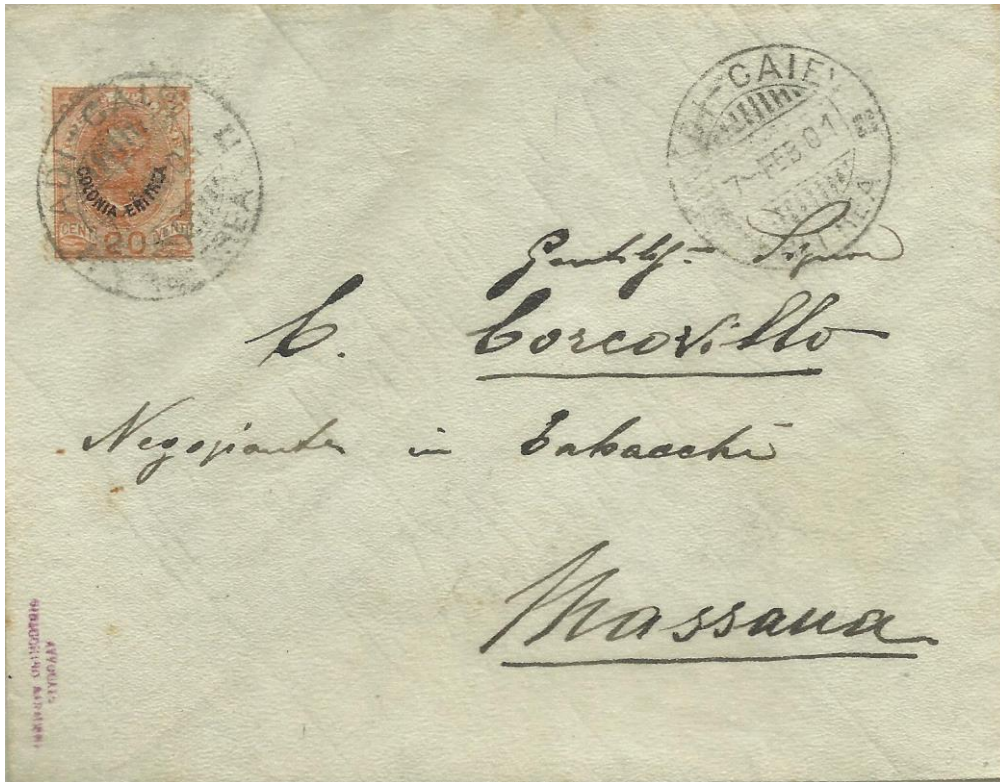 COLONIA ERITREA
CENT 20 VENTI
ADI-CAIE
7-FEB 01
Gentilᵐᵒ Signor
C. Corcovillo
Negoziante in Tabacchi
Massaua
AVVOCATO